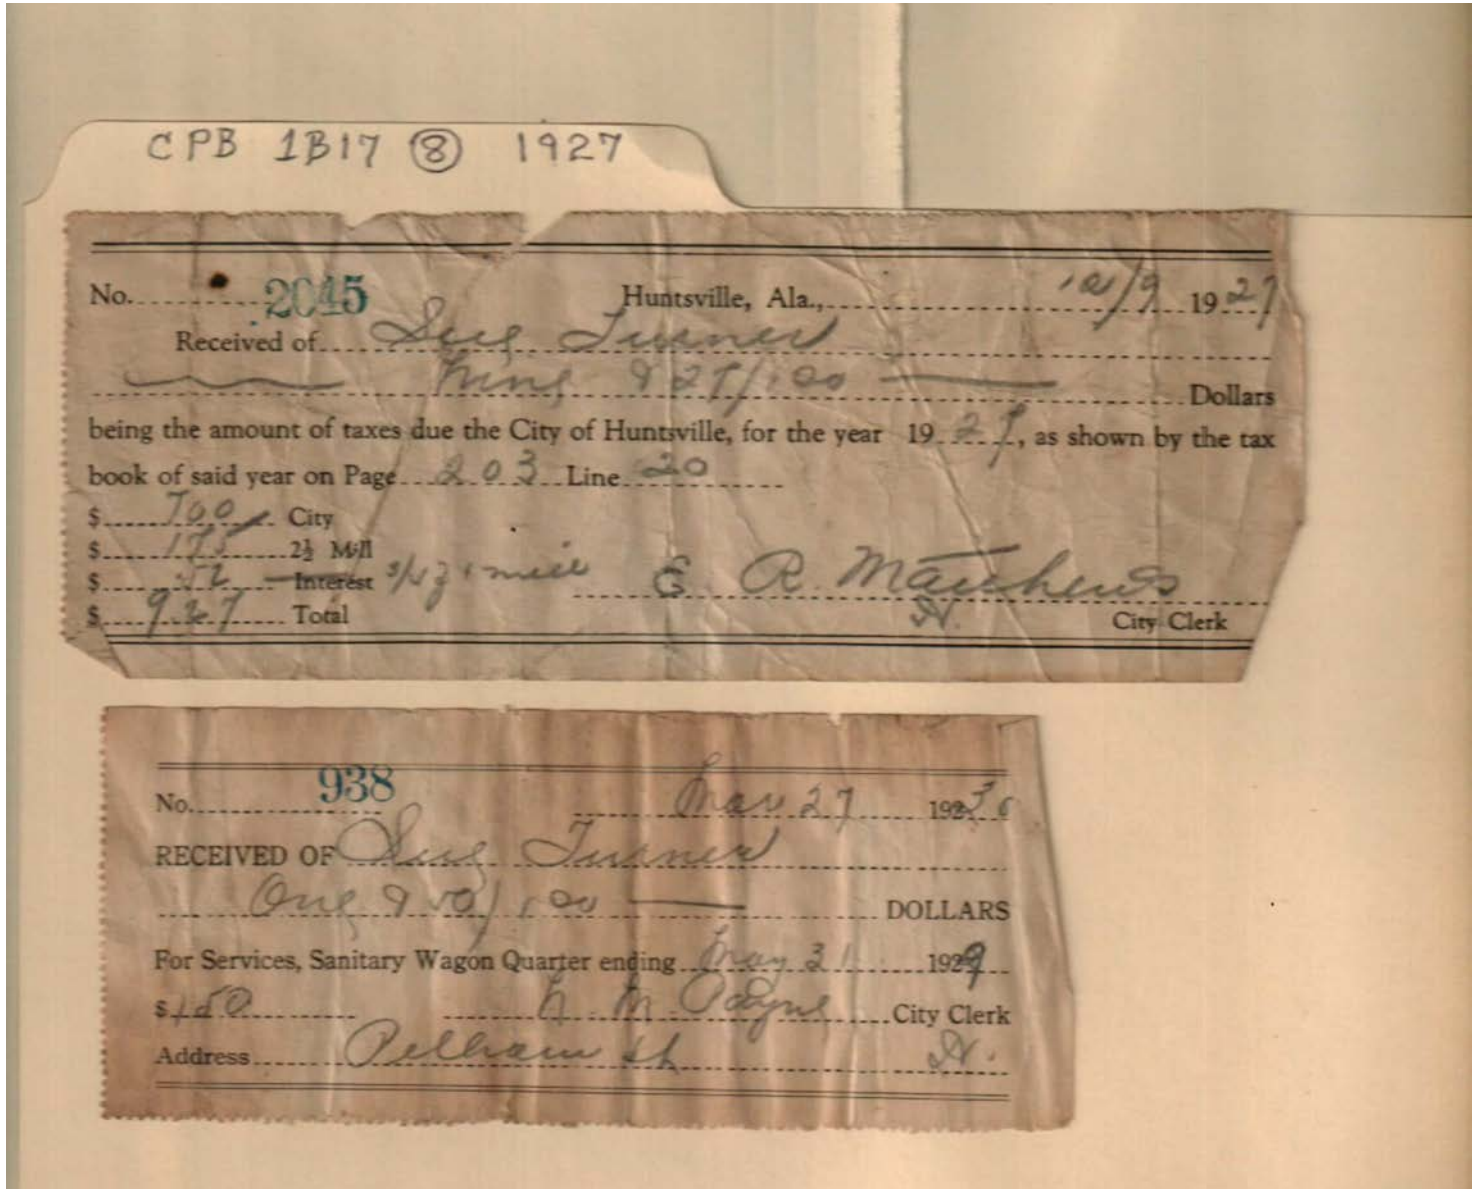 CPB 1B17 ⑧ 1927
No. 2045 Huntsville, Ala., 10/9 1927
Received of Sue Turner
Nine & 27/100 Dollars
being the amount of taxes due the City of Huntsville, for the year 1927, as shown by the tax
book of said year on Page 203 Line 20
$ 700 City
$ 175 2½ Mill
$ 52 Interest mill
$ 9.27 Total
E R. Matthews
H. City Clerk
No. 938 Mar 27 19230
RECEIVED OF Sue Turner
One & 50/100 DOLLARS
For Services, Sanitary Wagon Quarter ending May 31 1929
$ 150 Payne City Clerk
Address Pelham St H.